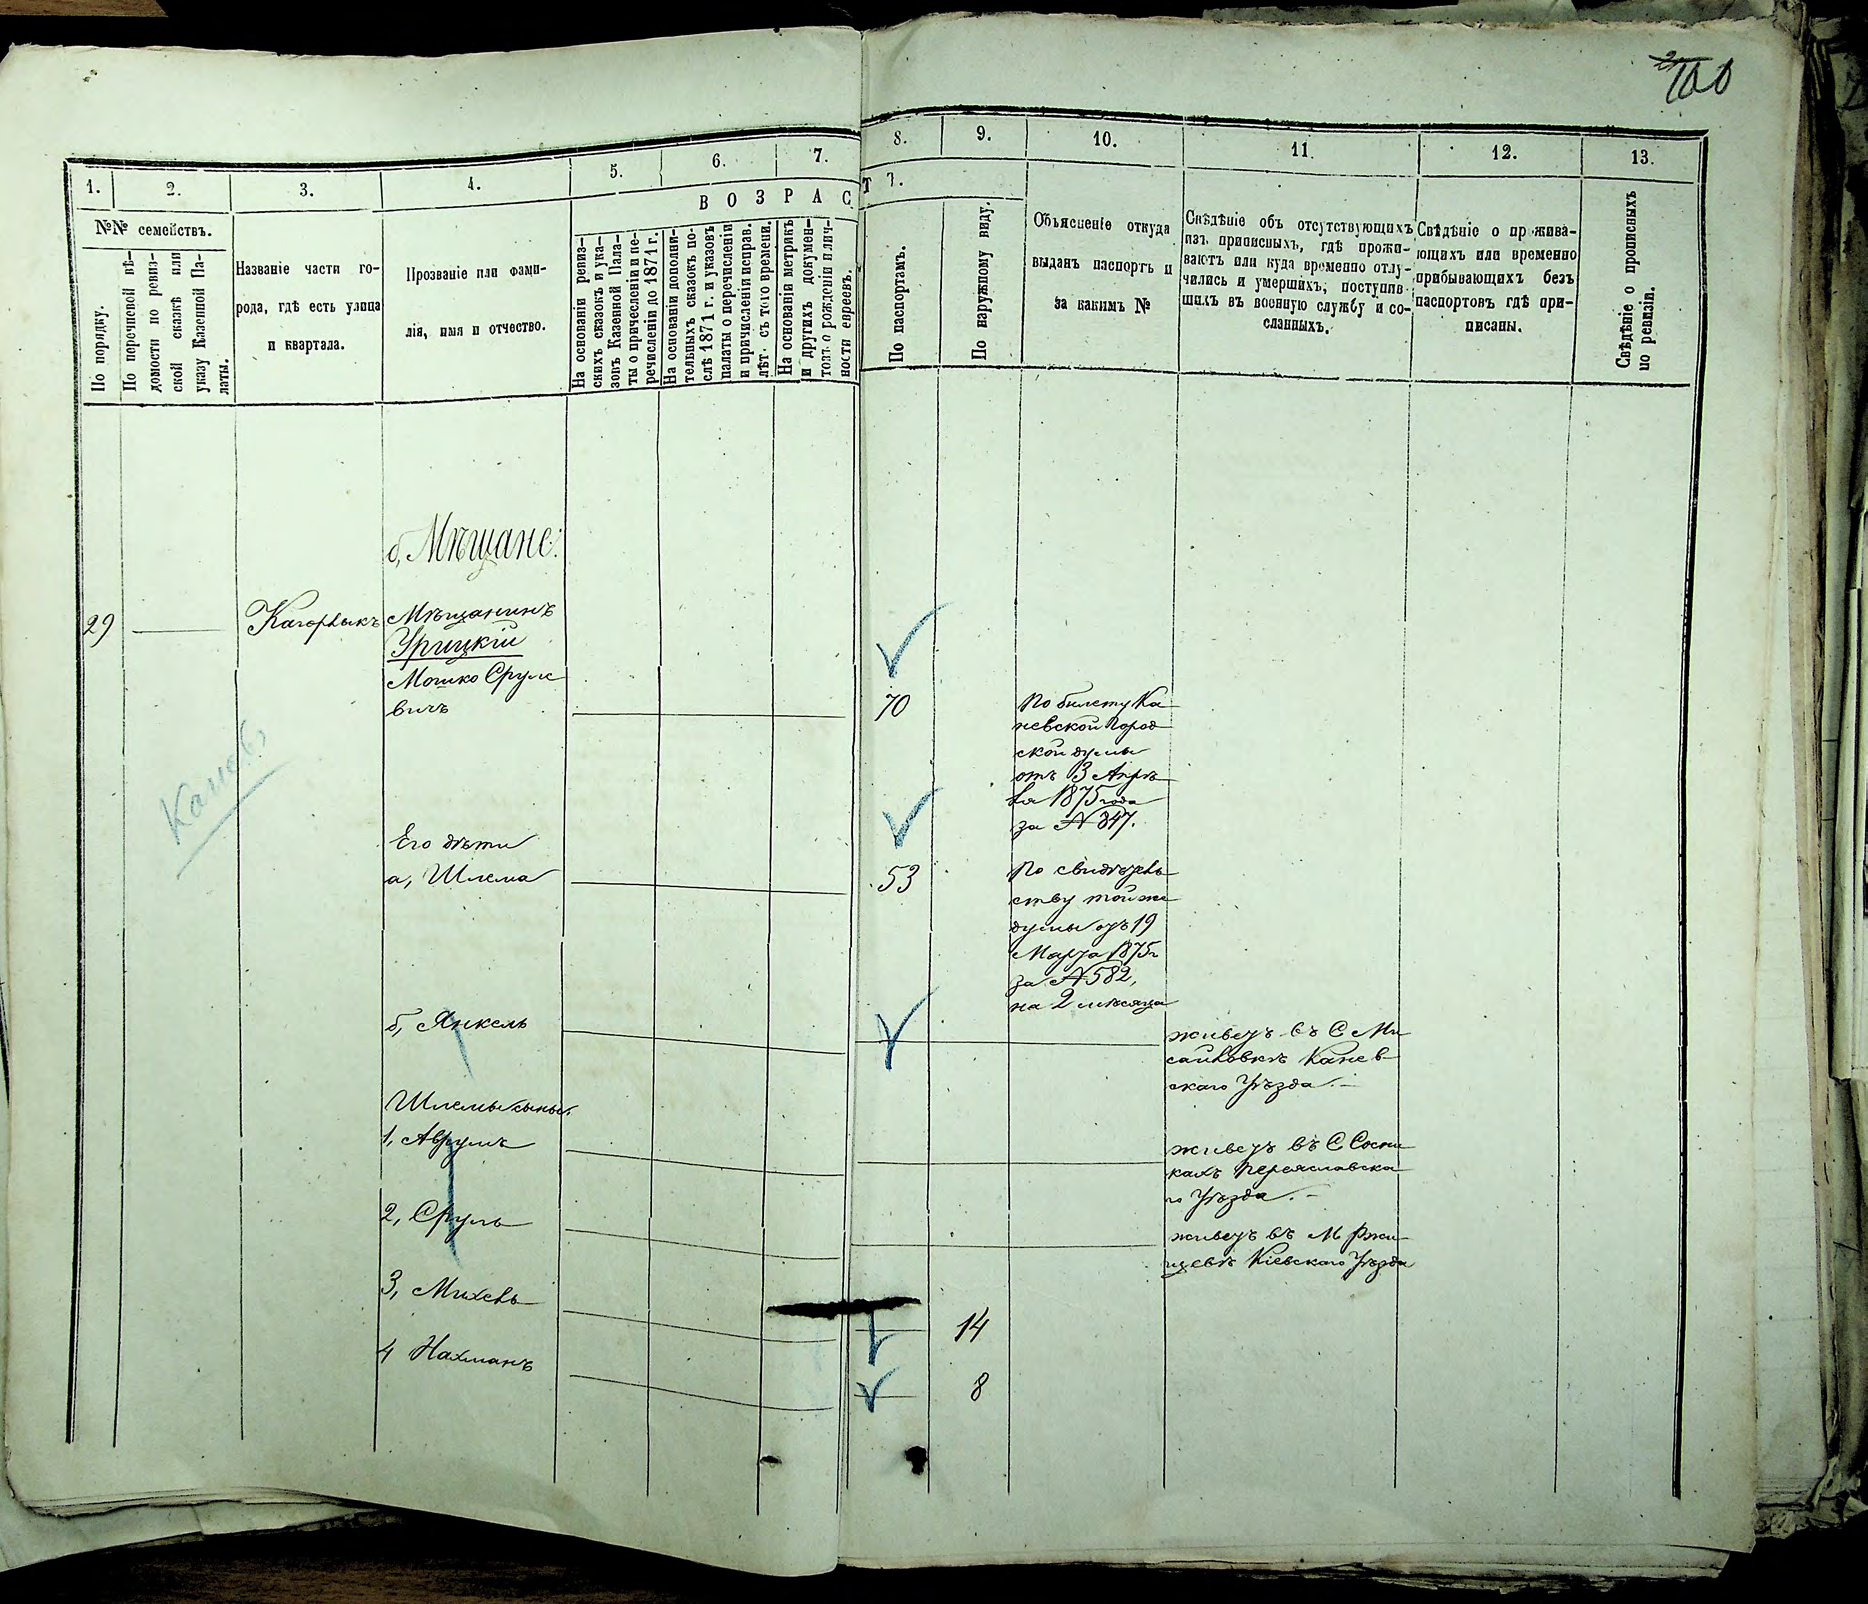 100
1.
2.
3.
4.
5.
6.
7.
8.
9.
10.
11.
12.
13.
В О З Р А С
Т Ъ.
№№ семействъ.
По порядку.
По перечневой вѣ-
домости по ревиз-
ской сказкѣ или
указу Казенной Па-
латы.
Названіе части го-
рода, гдѣ есть улица
и квартала.
Прозваніе или фами-
лія, имя и отчество.
На основаніи ревиз-
скихъ сказокъ и ука-
зовъ Казенной Пала-
ты о причисленіи и пе-
речисленіи до 1871 г.
На основаніи дополни-
тельныхъ сказокъ по-
слѣ 1871 г. и указовъ
палаты о перечисленіи
и причисленіи исправ.
лѣт. съ того времени.
На основаніи метрикъ
и другихъ докумен-
товъ о рожденіи и лич-
ности евреевъ.
По паспортамъ.
По наружному виду.
Объясненіе откуда
выданъ паспортъ и
за какимъ №
Свѣдѣніе объ отсутствующихъ
изъ приписныхъ, гдѣ прожи-
ваютъ или куда временно отлу-
чились и умершихъ, поступив-
шихъ въ военную службу и со-
сланныхъ.
Свѣдѣніе о прожива-
ющихъ или временно
прибывающихъ безъ
паспортовъ гдѣ при-
писаны.
Свѣдѣніе о прописныхъ
по ревизіи.
б, Мѣщане:
29
Кагорлыкъ
Мѣщанинъ
Урицкій
Мошко Сруле
вичъ
70
По билету Ка
невской Город
ской думы
отъ 3 Апрѣ
ля 1875 года
за № 847.
Каневъ
Его дѣти
а, Шлема
53
По свидѣтель
ству той же
думы отъ 19
Марта 1875 г
за № 582,
на 2 мѣсяца
б, Янкель
живетъ въ С Ми
сайловкѣ Канев
скаго Уѣзда.
Шлемы сыны.
1, Аврумъ
живетъ въ С Сосни
кахъ Переяславска
го Уѣзда.
2, Сруль
живетъ въ М Ржи
щевѣ Кіевскаго Уѣзда
3, Михель
14
4 Нахманъ
8